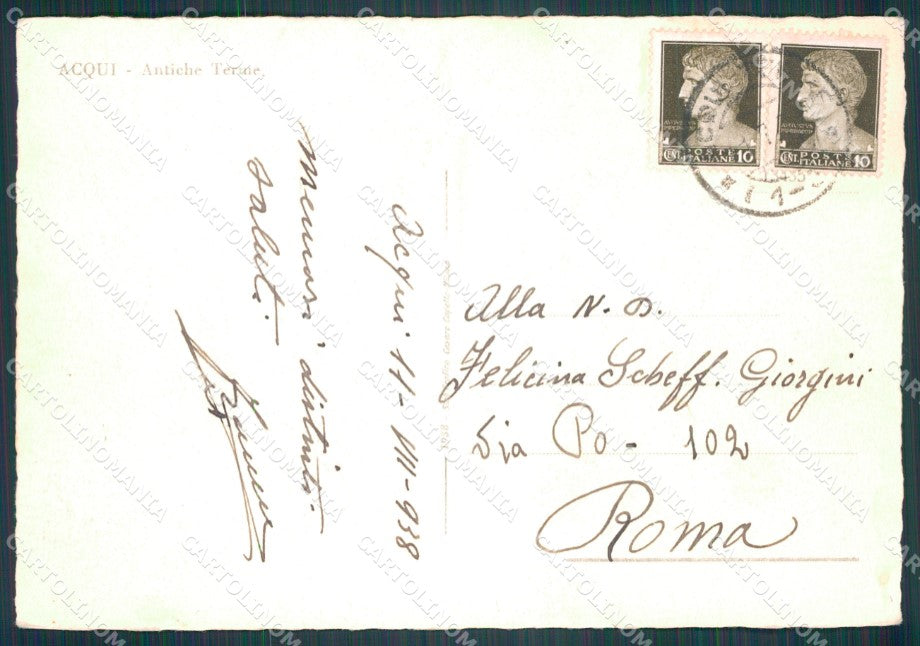 ACQUI - Antiche Terme
memori distinti
saluti.
Acqui 11-VIII-938
1938
Alla N. D.
Felicina Scheff. Giorgini
Via Po - 102
Roma
POSTE
ITALIANE
CENT. 10
POSTE
ITALIANE
CENT. 10
CARTOLINOMANIA